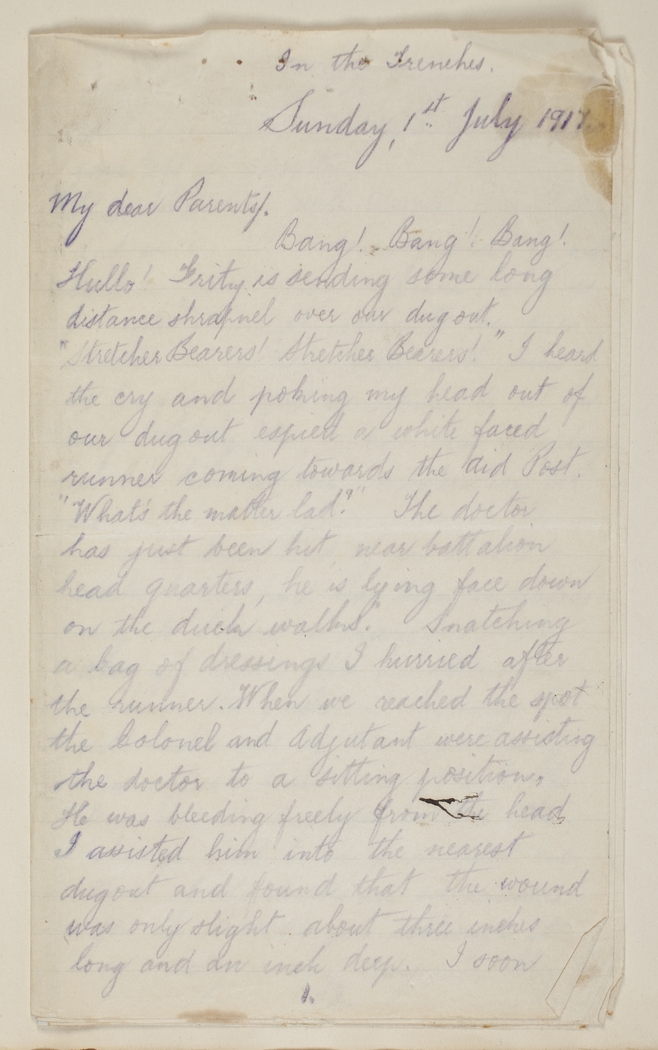 In the Trenches.
Sunday, 1st July 1917.
My dear Parents/.
Bang! Bang! Bang!.
Hullo! Fritz is sending some long
distance shrapnel over our dug out.
"Stretcher Bearers! Stretcher Bearers!" I heard
the cry and poking my head out of
our dug out espied a white faced
runner coming towards the Aid Post.
"What's the matter lad?" The doctor
has just been hit, near battalion
head quarters, he is lying face down
on the duck walks." Snatching
a bag of dressings I hurried after
the runner. When we reached the spot
the Colonel and Adjutant were assisting
the doctor to a sitting position.
He was bleeding freely from the head,
I assisted him into the nearest
dugout and found that the wound
was only slight. about three inches
long and an inch deep. I soon
1.